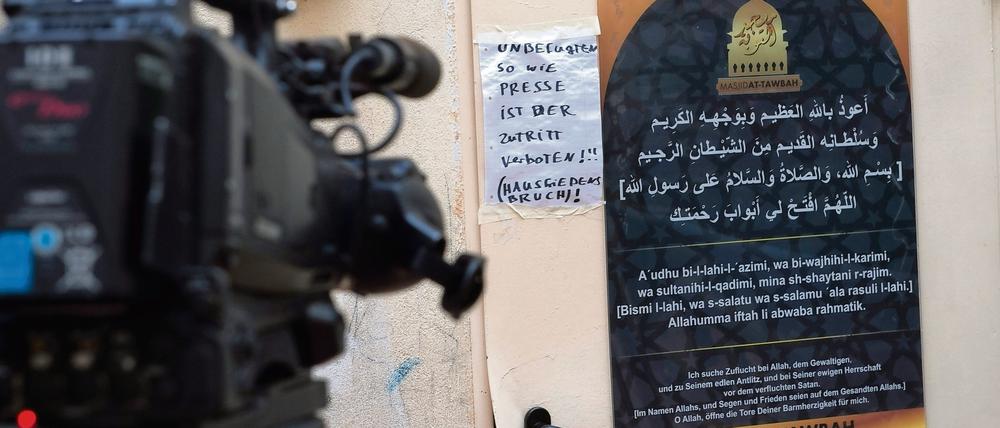 UNBEFUGTEN
SO WIE
PRESSE
IST DER
ZUTRITT
VERBOTEN!!!
(HAUSFIEDENS
BRUCH)!
MASJID AT-TAWBAH
أَعوذُ بِاللهِ العَظيـم وَبِوَجْهِـهِ الكَرِيـم
وَسُلْطانِه القَديـم مِنَ الشّيْـطانِ الرَّجيـم
[ بِسْـمِ الله، وَالصَّلاةُ وَالسَّلامُ عَلى رَسولِ الله]
اللّهُـمَّ افْتَـحْ لي أَبْوابَ رَحْمَتـِك
A´udhu bi-l-lahi-l-´azimi, wa bi-wajhihi-l-karimi,
wa sultanihi-l-qadimi, mina sh-shaytani r-rajim.
[Bismi l-lahi, wa s-salatu wa s-salamu ´ala rasuli l-lahi.]
Allahumma iftah li abwaba rahmatik.
Ich suche Zuflucht bei Allah, dem Gewaltigen,
und zu Seinem edlen Antlitz, und bei Seiner ewigen Herrschaft
vor dem verfluchten Satan.
[Im Namen Allahs, und Segen und Frieden seien auf dem Gesandten Allahs.]
O Allah, öffne die Tore Deiner Barmherzigkeit für mich.